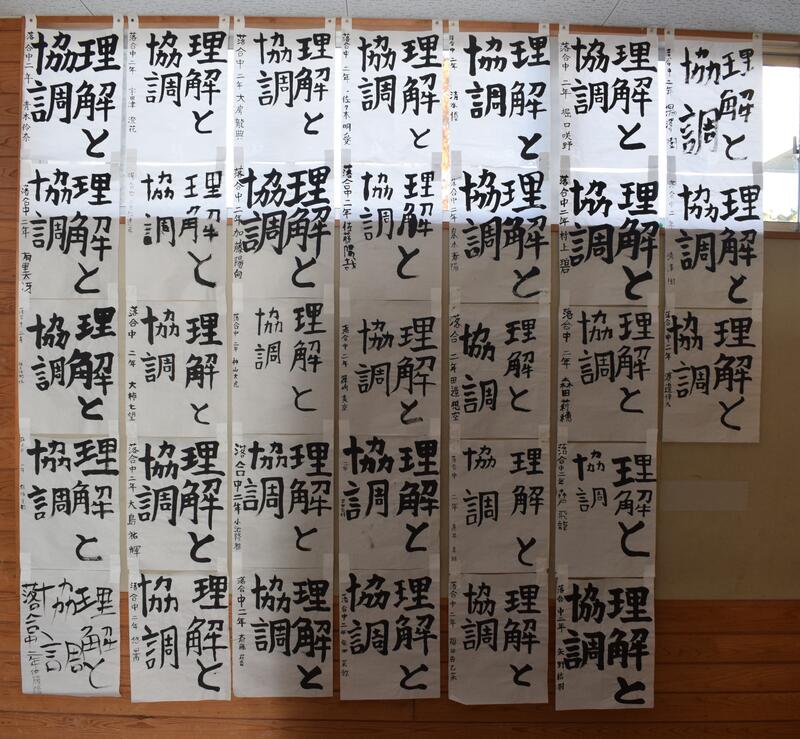 理解と
協調
落合中二年 青木伶奈
理解と
協調
落合中二年
理解と
協調
理解と
協調
理解と
協調
落合中二年
理解と
協調
落合中二年
理解と
協調
理解と
協調
落合中 二年 大柿七望
理解と
協調
落合中二年 大島祐輝
理解と
協調
落合中二年
理解と
協調
落合中 二年 大房龍典
理解と
協調
落合中二年 加藤陽向
理解と
協調
落合中 二年 神山
理解と
協調
落合中二年 小池
理解と
協調
落合中二年 斎藤
理解と
協調
落合中 二年 佐々木明愛
理解と
協調
落合中二年 佐藤陽哉
理解と
協調
落合中 二年 篠崎
理解と
協調
理解と
協調
落合中二年
理解と
協調
落合中二年 清水優
理解と
協調
落合中二年
理解と
協調
落合 二年 田邉想空
理解と
協調
落合中 二年
理解と
協調
落合中二年
理解と
協調
落合中 二年 堀口咲野
理解と
協調
落合中二年 村上碧
理解と
協調
落合中 二年 森田莉穂
理解と
協調
落合中二年 飛龍
理解と
協調
落合中二年 矢野
理解と
協調
落合中二年
理解と
協調
落合中二年
理解と
協調
落合中二年 渡邉